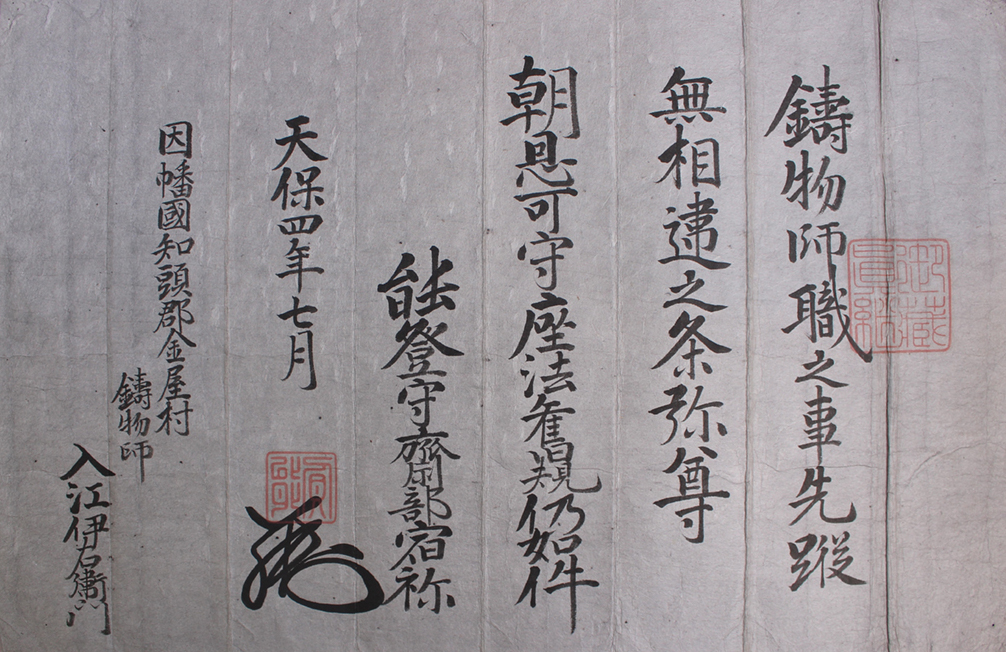 鑄物師職之事先蹤
無相違之条弥尊
朝恩可守座法舊規仍如件
能登守齋部宿祢
天保四年七月
因幡國知頭郡金屋村
鑄物師
入江伊右衛門